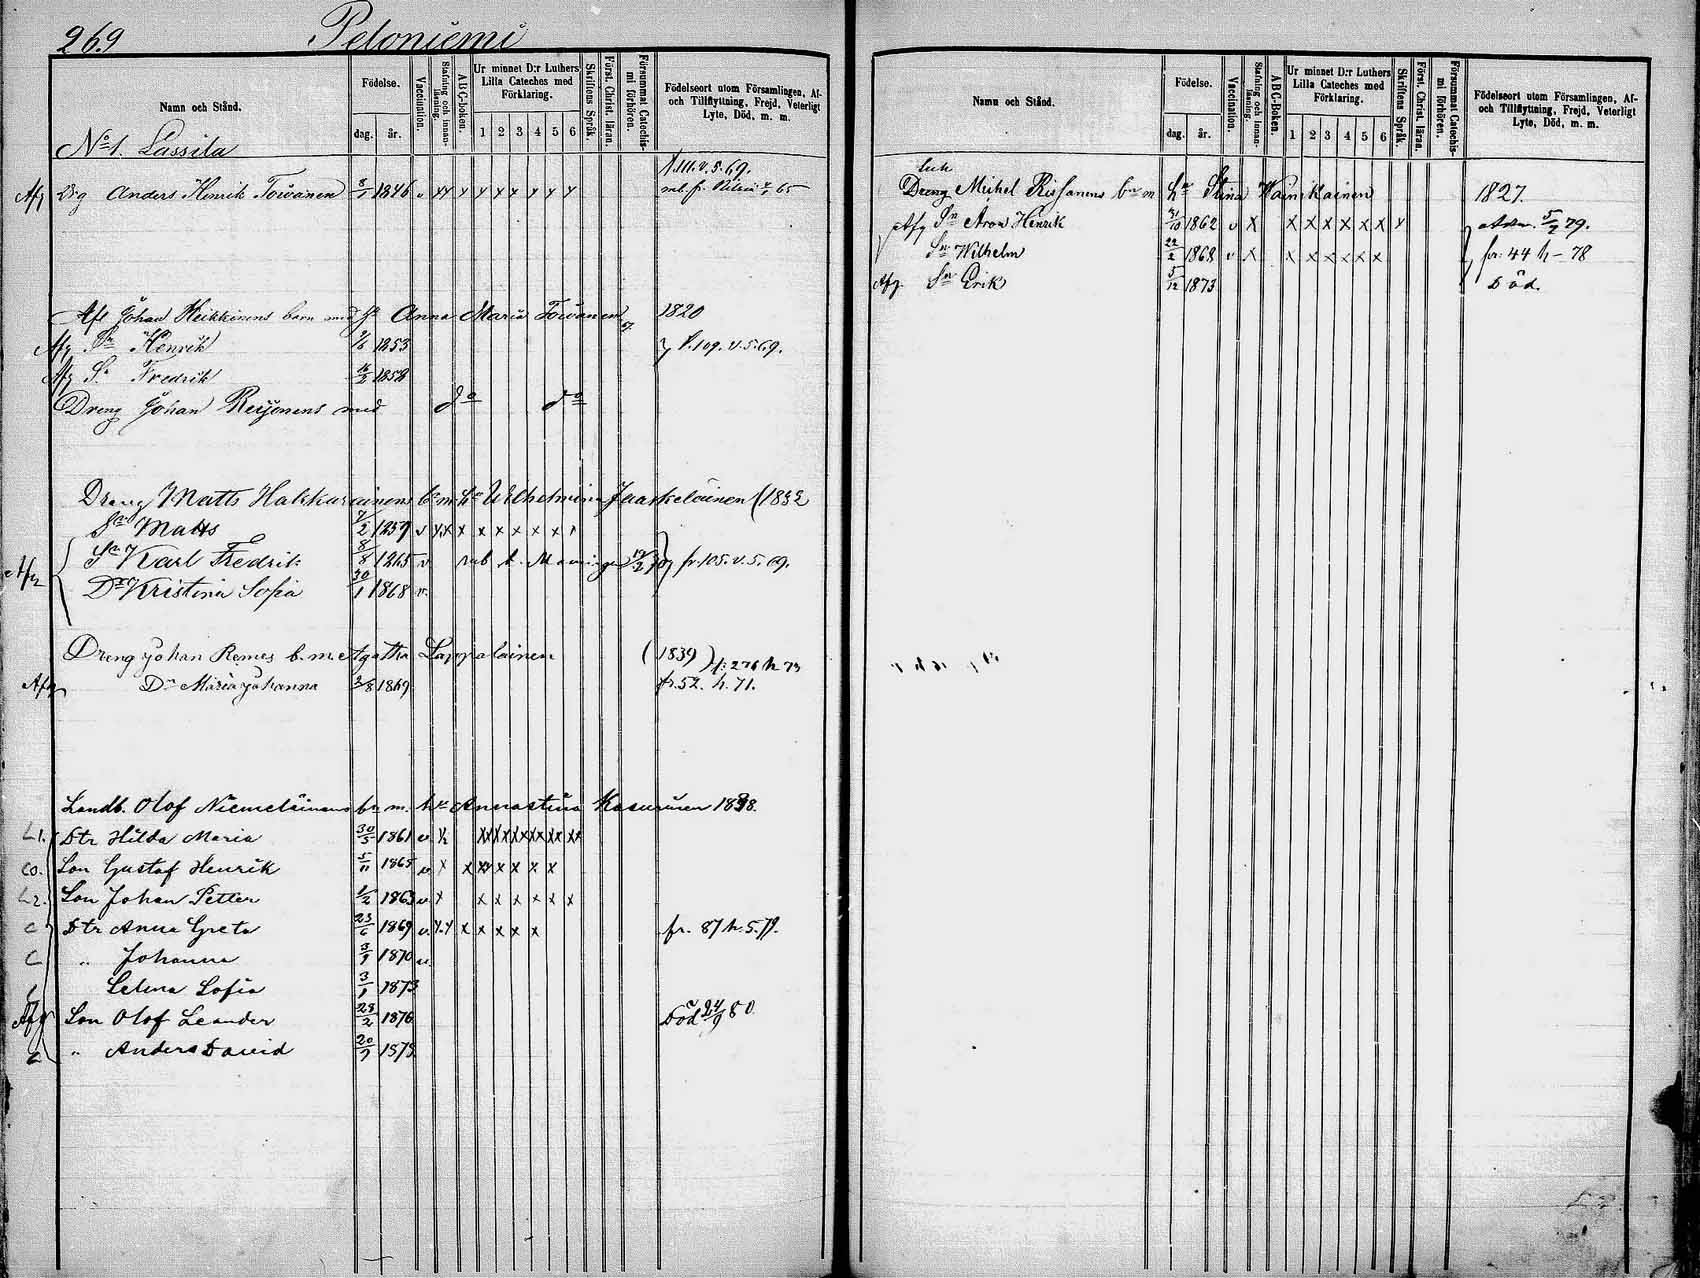 269 Peloniemi
Namn och Stånd.
Födelse.
dag. år.
Vaccination.
Stafning och innanläsning.
ABC-boken.
Ur minnet D:r Luthers Lilla Cateches med Förklaring.
1 2 3 4 5 6
Skriftens Språk.
Först. Christ. läran.
Försummat Catechismi förhören.
Födelseort utom Församlingen, Af- och Tillflyttning, Frejd, Veterligt Lyte, Död, m. m.
No 1. Lassila
Anders Henrik Toivanen 1846 v x x x x x x x x 65
Johan Heikkinens barn med Anna Maria Toivanen 1820
Sn Henrik 1853 p. 109. v. 5. 69.
Sn Fredrik 1858
Dreng Johan Reijonens med do do
Dreng Matts Hakkarainens b. m. ho Wilhelmina Jääskeläinen (1832
Sn Matts 7/2 1859 v x x x x x x x x
Sn Karl Fredrik 8/8 1865 v fr 105. v. 5. 69.
Dr Kristina Sofia 30/1 1868 v.
Dreng Johan Remes b. m. Agatha Lappalainen (1839)
Afg Dr Maria Johanna 3/8 1869 fr. 52. h. 71.
Landb. Olof Niemeläinens bn m. hu Annastina Kasurinen 1838.
Dtr Hilda Maria 30/5 1861 v.
Son Gustaf Henrik 5/11 1865 v. x x x x x x x
Son Johan Petter 1/2 1863 v. x x x x x x x
C Dtr Anna Greta 23/6 1869 v. x x x x x x x fr. 87 h. 5. 79.
C " Johanna 3/9 1870 v.
Selma Sofia 3/1 1873
Afg Son Olof Leander 28/2 1876 Död 24/9 80
C " Anders David 20/9 1878
Namn och Stånd.
Födelse.
dag. år.
Vaccination.
Stafning och innanläsning.
ABC-boken.
Ur minnet D:r Luthers Lilla Cateches med Förklaring.
1 2 3 4 5 6
Skriftens Språk.
Först. Christ. läran.
Försummat Catechismi förhören.
Födelseort utom Församlingen, Af- och Tillflyttning, Frejd, Veterligt Lyte, Död, m. m.
Dreng Mickel Rissanens bn m hu Stina Wainikainen 1827.
Afg Sn Aron Henrik 31/10 1862 v x x x x x x x x 79.
Sn Wilhelm 22/2 1868 v x x x x x x x fr. 44 h - 78
Afg. Sn Erik 5/12 1873 Död.